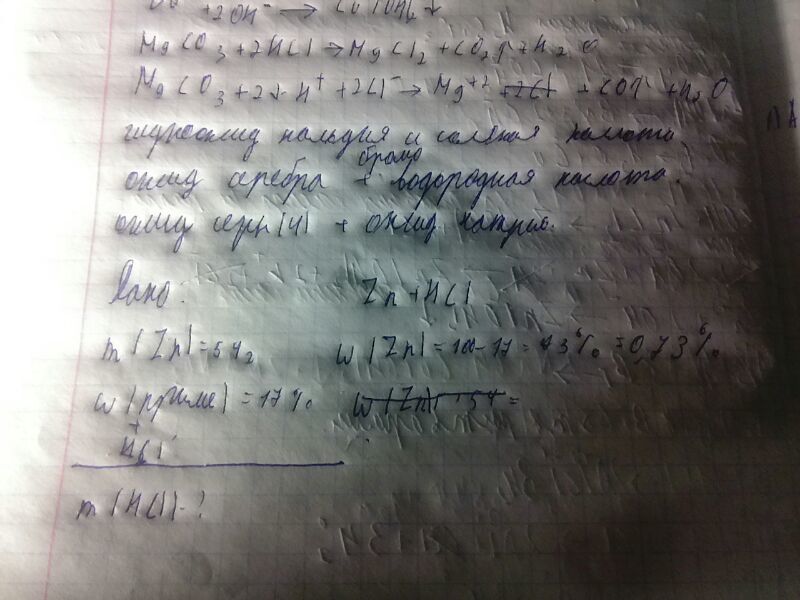 +2OH⁻ → Cu(OH)₂↓
MgCO₃+2HCl→MgCl₂+CO₂↑+H₂O
MgCO₃+2H⁺+2Cl⁻→Mg⁺² +2Cl +CO↑ +H₂O
гидроксид кальция и соляная кислота.
оксид серебра + бромоводородная кислота.
оксид серы (4) + оксид натрия.
Дано: Zn+HCl
m(Zn)=54г w(Zn)=100-17=73% =0,73%
w(прime)=17% w(Zn) 54=
+
HCl
m(HCl)-?